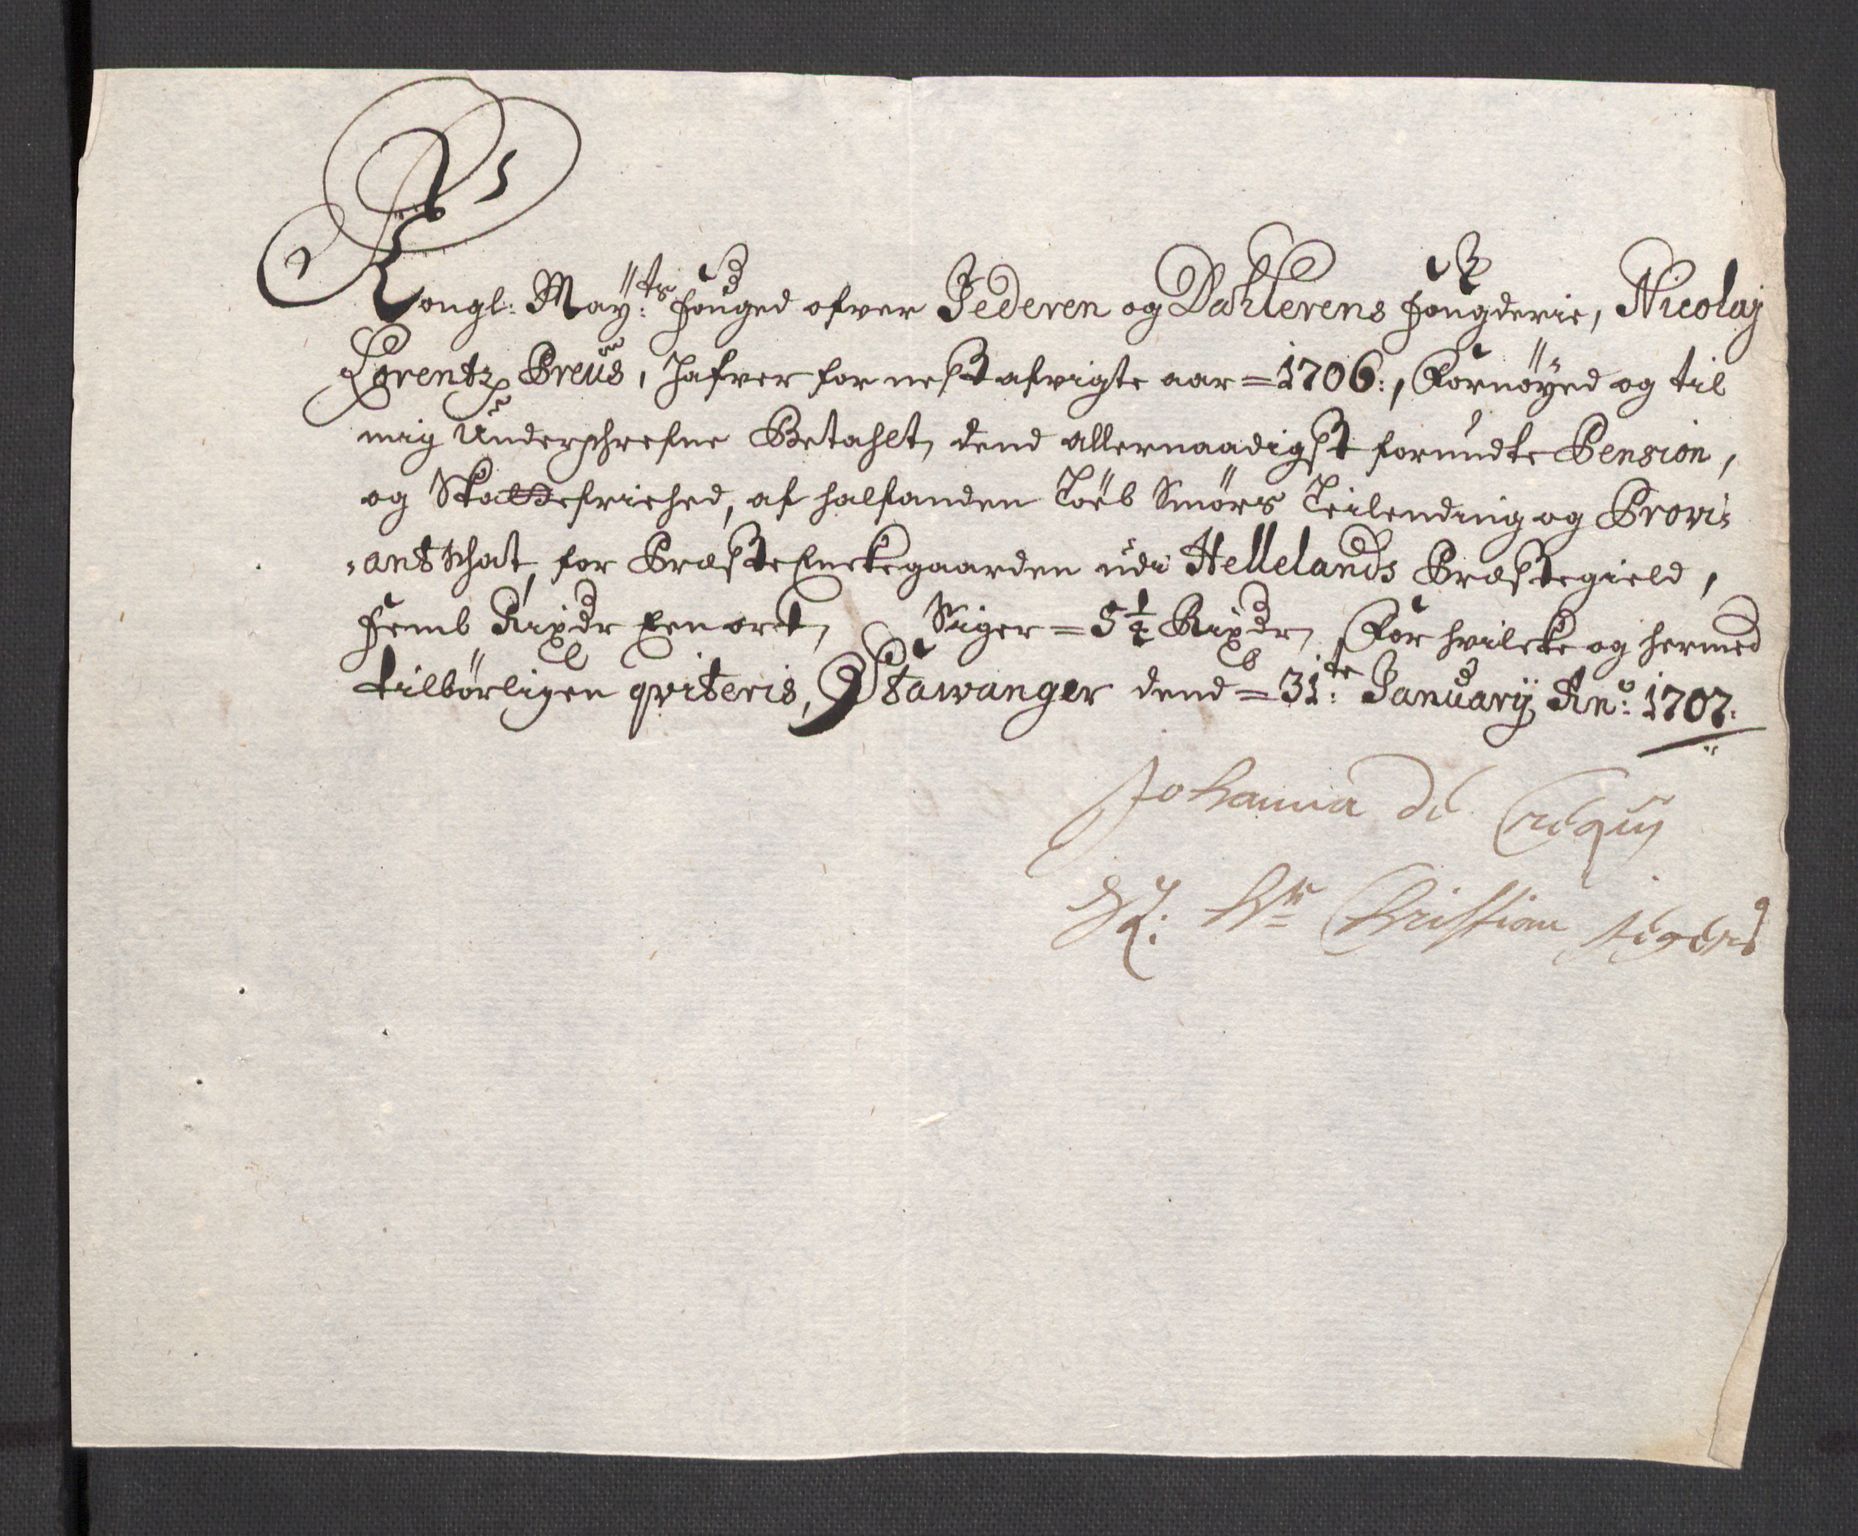 Kongl: May:ts fouged ofver Jederen og Dahlerens fougderie, Nicolaj
Lorentz Preus, hafver for nest afvigte aar = 1706:, Fornøyed og til
mig Underschrefne Betahlt, dend allernaadigst forundte Pension,
og Skattefriehed, af halfanden Løb Smørs Leilending og Provi-
-antschat, for Præste Enckegaarden udi Hellelands Præstegield,
femb Rixdr Een ort, Siger = 5 1/4 Rixdr, For hvilcke og hermed
tilbørligen qviteris, Stawanger dend = 31:te Januarij An:o 1707:
Johanna de Crequij
Sl: Hr Christian